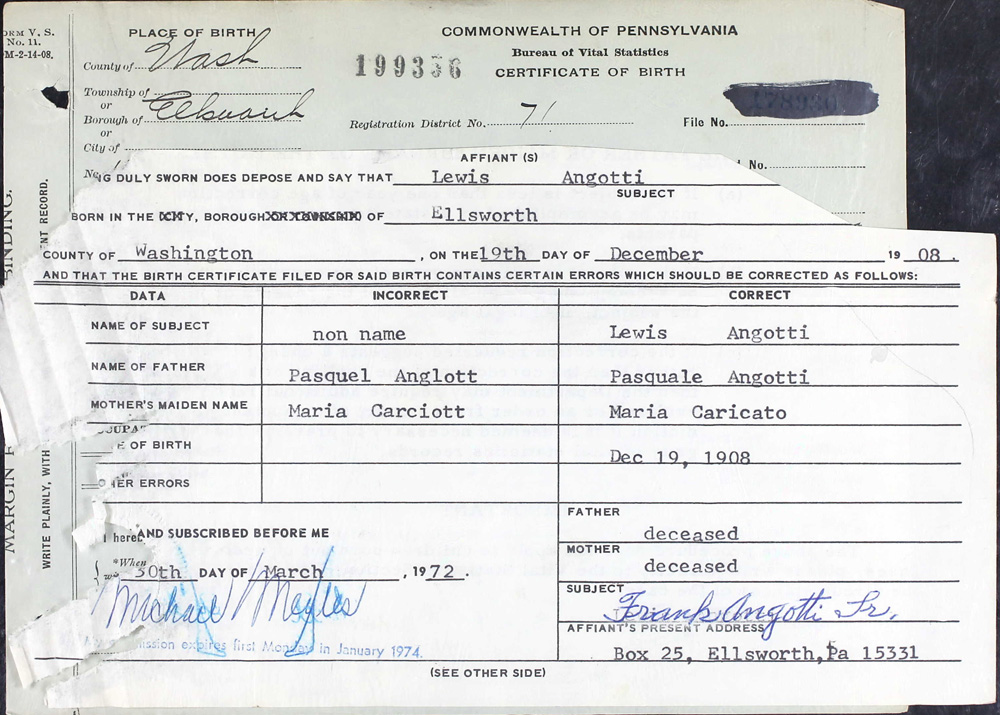 ORM V. S.
No. 11.
M-2-14-08.
PLACE OF BIRTH
County of Wash
Township of
or
Borough of Ellsworth
or
City of
No.
COMMONWEALTH OF PENNSYLVANIA
Bureau of Vital Statistics
CERTIFICATE OF BIRTH
Registration District No. 71
File No.
No.
AFFIANT (S)
G DULY SWORN DOES DEPOSE AND SAY THAT Lewis Angotti
SUBJECT
BORN IN THE TY, BOROUGH OF Ellsworth
COUNTY OF Washington, ON THE 19th DAY OF December 19 08.
AND THAT THE BIRTH CERTIFICATE FILED FOR SAID BIRTH CONTAINS CERTAIN ERRORS WHICH SHOULD BE CORRECTED AS FOLLOWS:
DATA INCORRECT CORRECT
NAME OF SUBJECT non name Lewis Angotti
NAME OF FATHER Pasquel Anglott Pasquale Angotti
MOTHER'S MAIDEN NAME Maria Carciott Maria Caricato
CUPA
E OF BIRTH Dec 19, 1908
ER ERRORS
I here AND SUBSCRIBED BEFORE ME
*When
30th DAY OF March, 1972.
Michael
mission expires first Monday in January 1974.
FATHER
deceased
MOTHER
deceased
SUBJECT
Frank Angotti Sr.
AFFIANT'S PRESENT ADDRESS
Box 25, Ellsworth, Pa 15331
(SEE OTHER SIDE)
BINDING.
MARGIN
NT RECORD.
WRITE PLAINLY, WITH